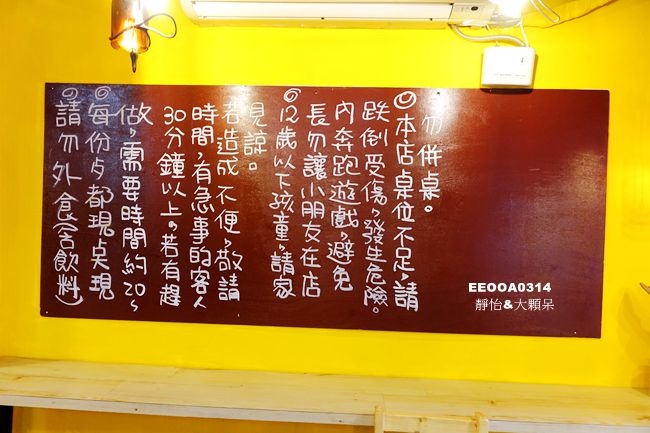 ◎請勿外食(含飲料)
◎每份歺都現奌現
做,需要時間約20~
30分鐘以上。若有趕
時間,有急事的客人
若造成不便,敬請
見諒。
◎12歲以下孩童,請家
長勿讓小朋友在店
內奔跑遊戲,避免
跌倒受傷,發生危險。
◎本店桌位不足,請
勿併桌。
EEOOA0314
靜怡&大顆呆